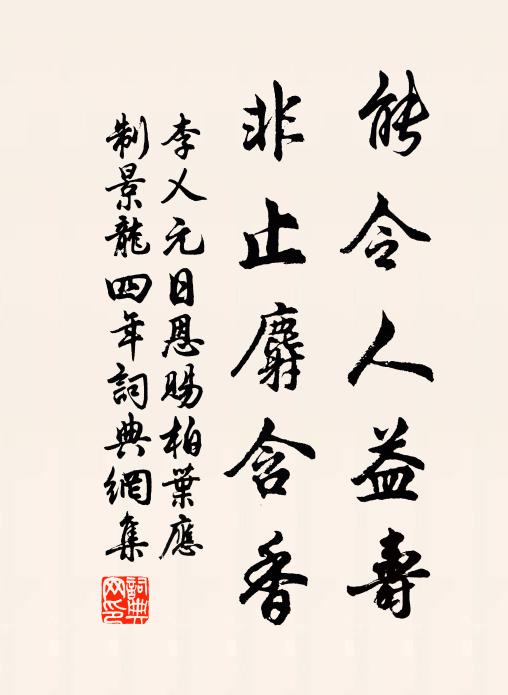 能令人益壽
非止麝含香
李乂元日恩賜柏葉應
制景龍四年詞典網集
詞典網印